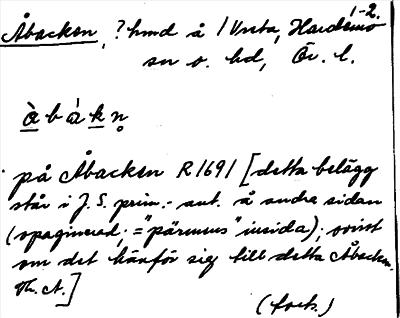 1-2.
Åbacken, ? hmd å 1 Vreta, Hardemo
sn o. hd, Ör. l.
àbákn̥
på Åbacken R 1691 [detta belägg
står i J.S. prim.- ant. å andra sidan
(opaginerad; = "pärmens" insida); ovisst
om det hänför sig till detta Åbacken.
Th. A.]
(forts.)